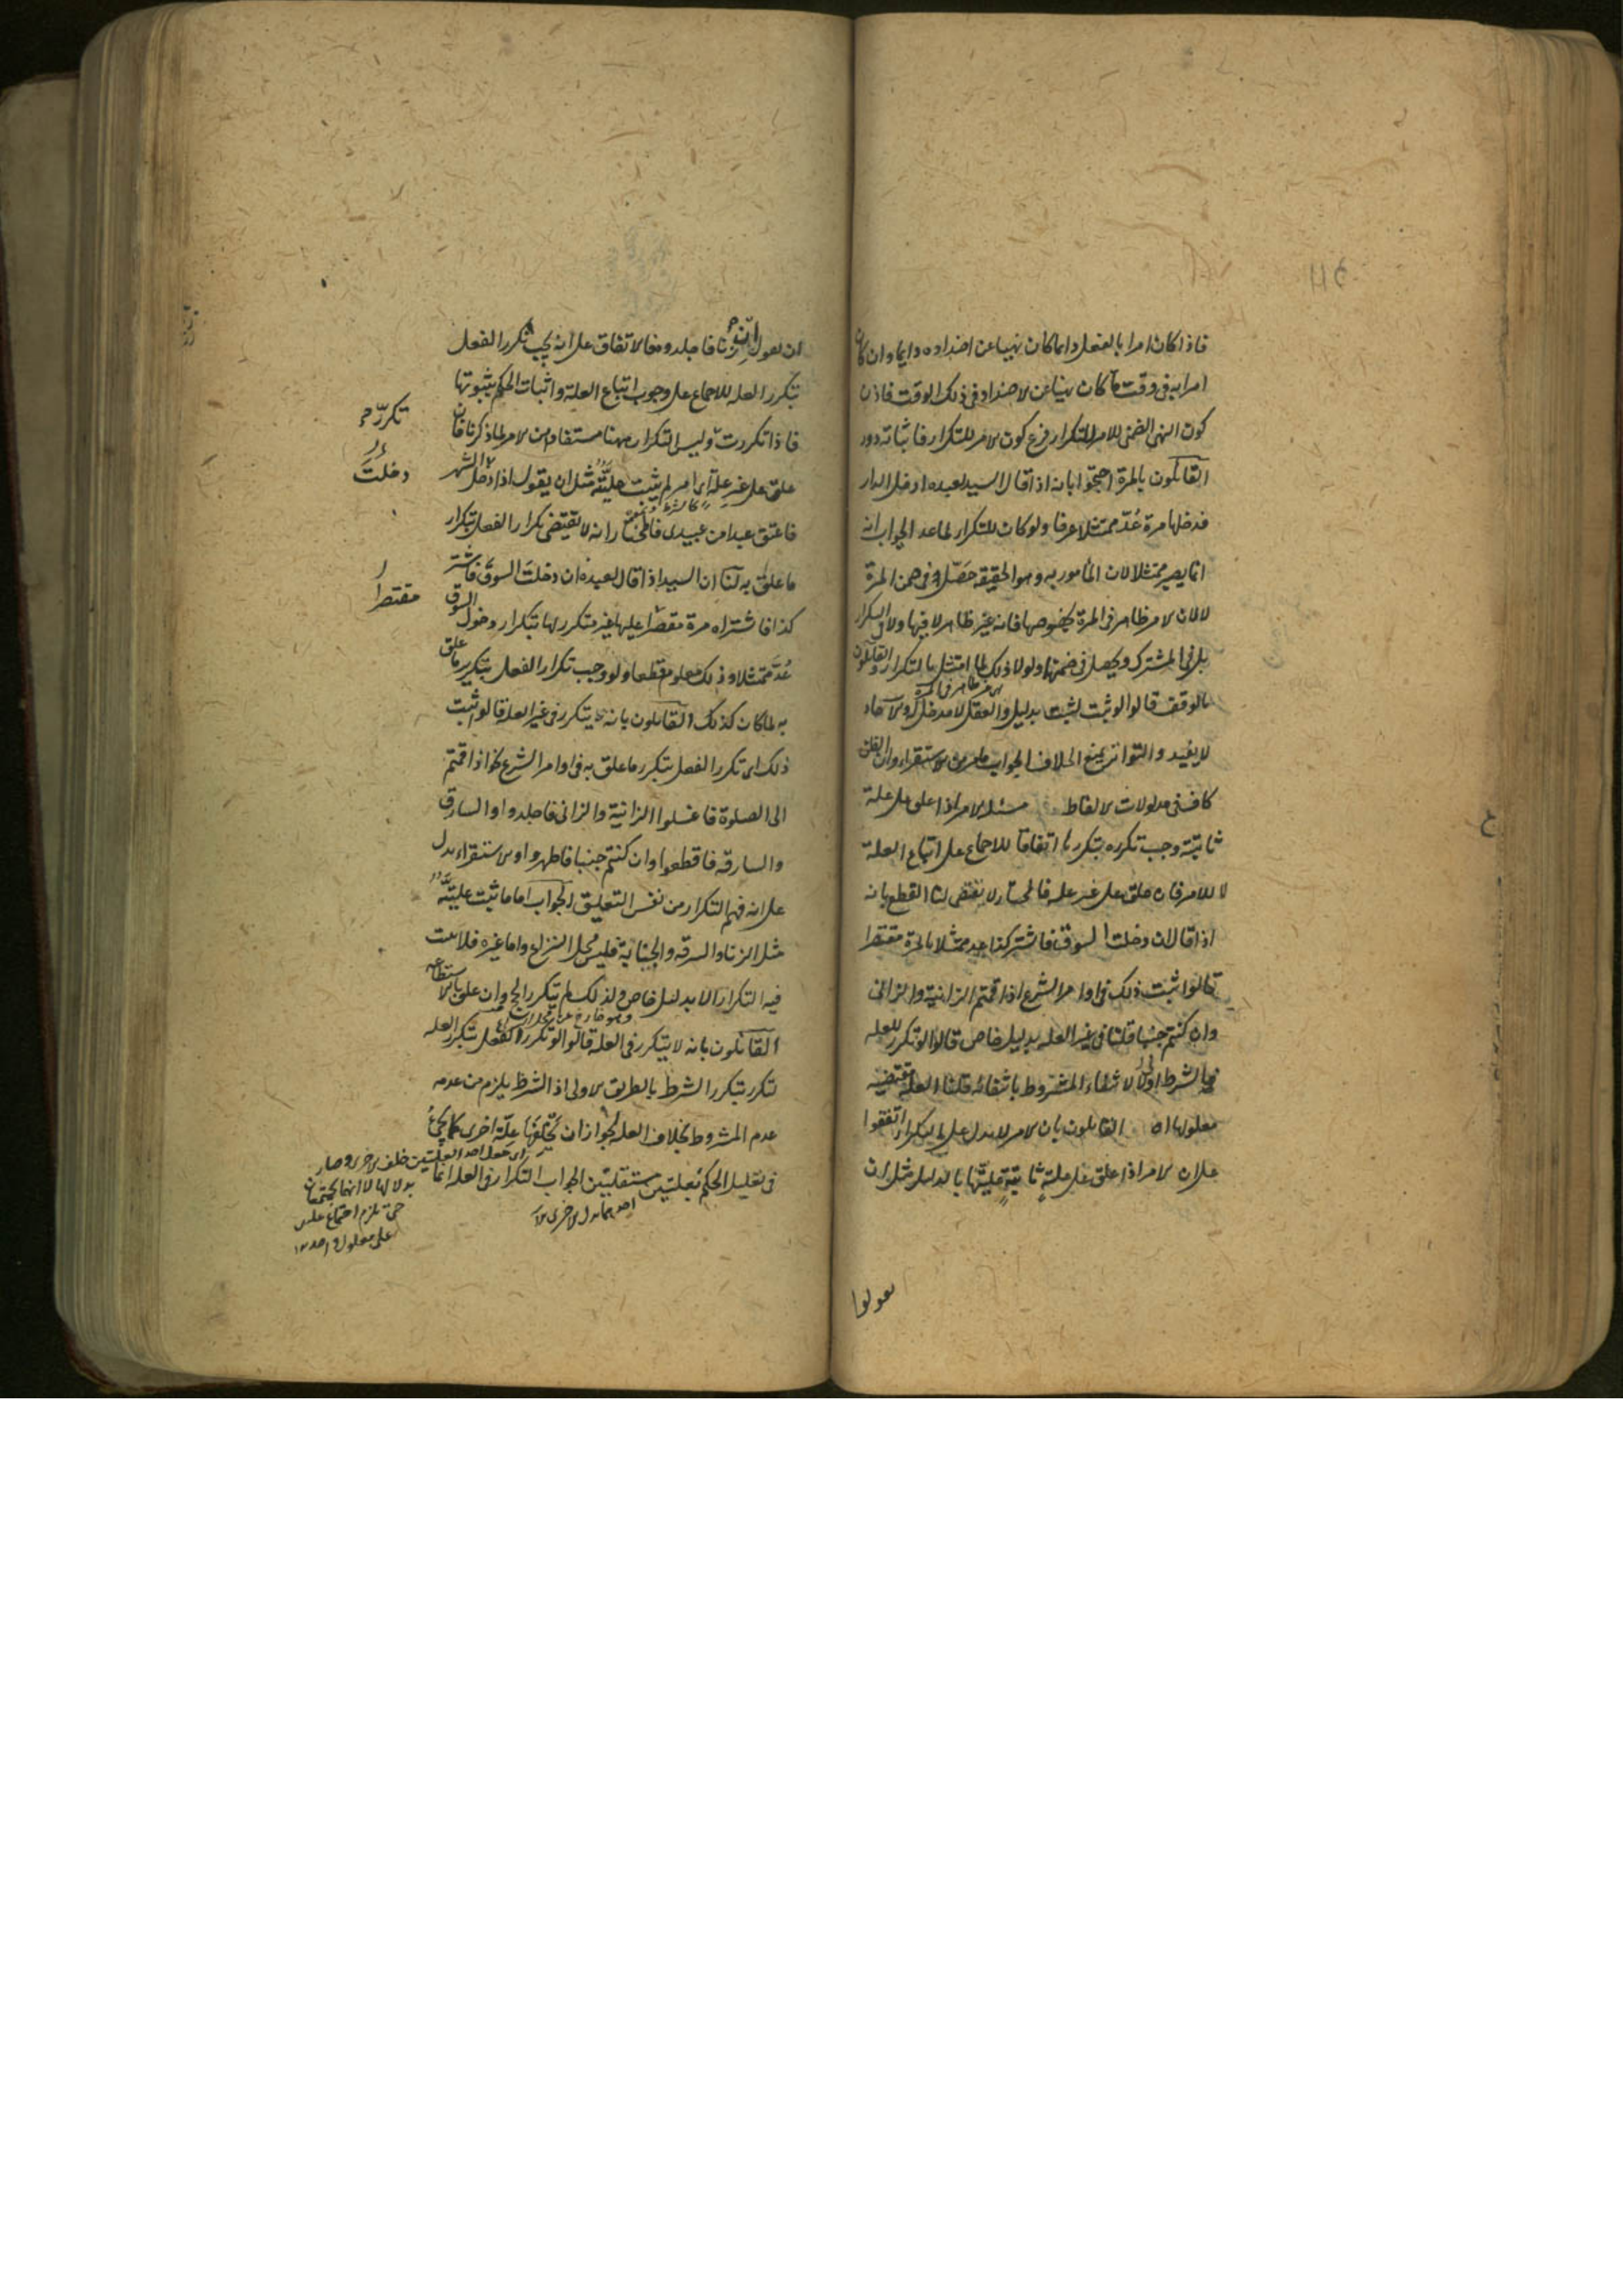 فاذا كان امرا بالفعل دايما كان نهيا عن اضداده دايما وان كان
امرا به فى وقت ما كان نهيا عن الاضداد فى ذلك الوقت فاذن
كون النهى الضمنى للامر للتكرار فرع كون الامر للتكرار فاثباته دور
القائلون بالمرة احتجوا بانه اذا قال السيد لعبده ادخل الدار
فدخلها مرة عُدّ ممتثلا عرفا ولو كان للتكرار لما عد الجواب انه
انما يصير ممتثلا لان المأمور به وهو الحقيقه حَصَل فى ضمن المرة
لا لان الامر ظاهر فى المرة بخصوصها فانه غير ظاهر لا فيها ولا فى التكرار
بل فى المشترك ويحصل فى ضمنها ولولا ذلك لما امتثل بالتكرار القائلون
بالوقف قالوا لو ثبت لثبت بدليل والعقل لا مدخل له والآحاد
لا يفيد والتواتر يمنع الخلاف الجواب ما مر من الاستقراء وان الظن
كاف فى مدلولات الالفاظ مسئلة الامر اذا علق على علة
ثابتة وجب تكرره بتكررها اتفاقا للاجماع على اتباع العلة
لا للامر فان علق على غير علة فالمختار لا يقتضى لنا القطع بانه
اذا قال ان دخلت السوق فاشتر كذا عد ممتثلا بالمرة مقتصرا
قالوا ثبت ذلك فى اوامر الشرع اذا قمتم الزانية والزانى
وان كنتم جنبا قلنا فى غير العلة بدليل خاص قالوا لو تكرر للعله
فالشرط اولى لانتفاء المشروط بانتفائه قلنا العلة مقتضيه
معلولها اه القائلون بان الامر لا يدل على التكرار اتفقوا
على ان الامر اذا علق على علة ثابتة عليتها بالدليل مثل ان
يقولوا
ان يقول ان زنا فاجلدوه فالاتفاق على انه يجب تكرر الفعل
بتكرر العله للاجماع على وجوب اتباع العلة واثبات الحكم بثبوتها
فاذا تكررت تكرر وليس التكرار ههنا مستفادا من الامر لما ذكرنا فان
علق على غير علة اى امر لم يثبت عليته مثل ان يقول اذا دخل الشهر
فاعتق عبدا من عبيدى فالمختار انه لا يقتضى تكرار الفعل بتكرار
ما علق به لنا ان السيد اذا قال لعبده ان دخلت السوق فاشتر
كذا فاشتراه مرة مقتصرا عليها غير متكرر لها بتكرار دخول السوق
عُدَّ ممتثلا وذلك معلوم قطعا ولو وجب تكرار الفعل بتكرير ما علق
به لما كان كذلك القائلون بانه يتكرر فى غير العلة قالوا ثبت
ذلك اى تكرر الفعل بتكرر ما علق به فى اوامر الشرع نحو اذا قمتم
الى الصلوة فاغسلوا الزانية والزانى فاجلدوا والسارق
والسارقه فاقطعوا وان كنتم جنبا فاطهروا والاستقراء يدل
على انه فهم التكرار من نفس التعليق الجواب اما ما ثبت عليته
مثل الزنا والسرقه والجنابة فليس محل النزاع واما غيره فلا يثبت
فيه التكرار الا بدليل خاص ولذلك لم يتكرر الحج وان علق بالاستطاعه
القائلون بانه لا يتكرر فى العلة قالوا لو تكرر الفعل بتكرر العله
لتكرر بتكرر الشرط بالطريق الاولى اذ الشرط يلزم من عدمه
عدم المشروط بخلاف العله لجواز ان تخلفها علّة اخرى كما يجئ
فى تعليل الحكم بعلتين مستقلتين الجواب التكرار فى العله انما
تكرّر
دخلتَ
مقتصرا
اى جعل احد العلتين خلف الاخرى وصار
بدلا لها لا انهما يجتمعان
حتى يلزم اجتماع علتين
على معلول واحد